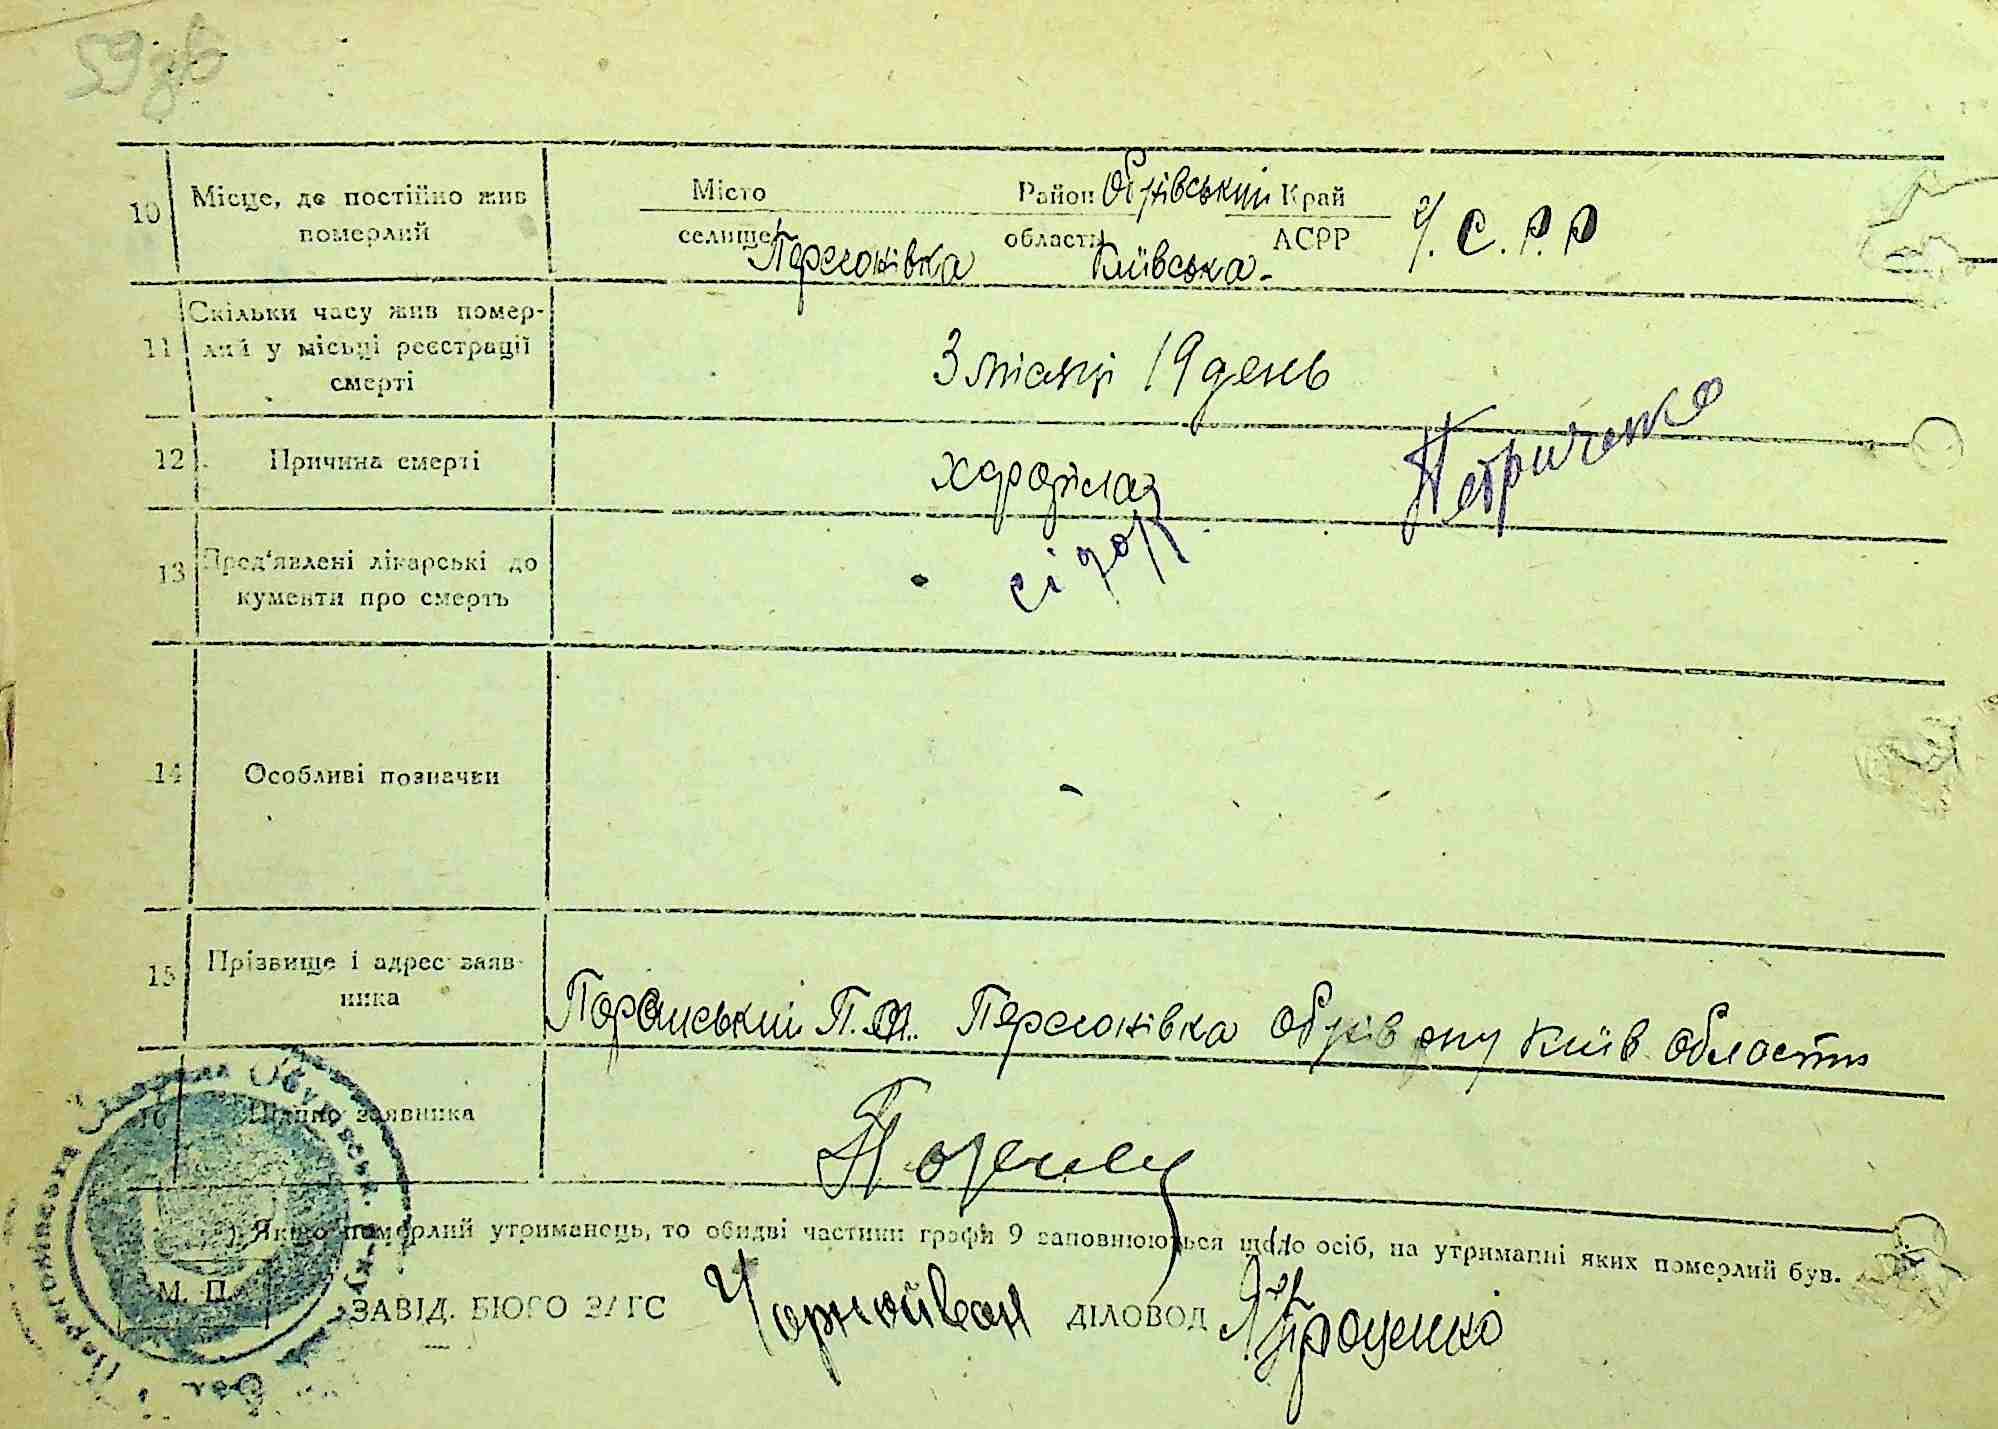 59 зв
10 Місце, де постійно жив померлий
Місто Район Обухівський Край У. С. Р. Р
селище Перегонівка області Київська АСРР
11 Скільки часу жив померлий у місьці реєстрації смерті
3 місяці 19 день
12 Причина смерті
Петриченко
13 Пред'явлені лікарські документи про смерть
14 Особливі позначки
-
15 Прізвище і адрес заявника
П. Перегонівка Обухів р-ну Київ області
16 Підпис заявника
Якщо померлий утриманець, то обидві частини графи 9 заповнюються щодо осіб, на утриманні яких померлий був.
М. П.
ЗАВІД. БЮРО ЗАГС Чорнойван ДІЛОВОД Проценко